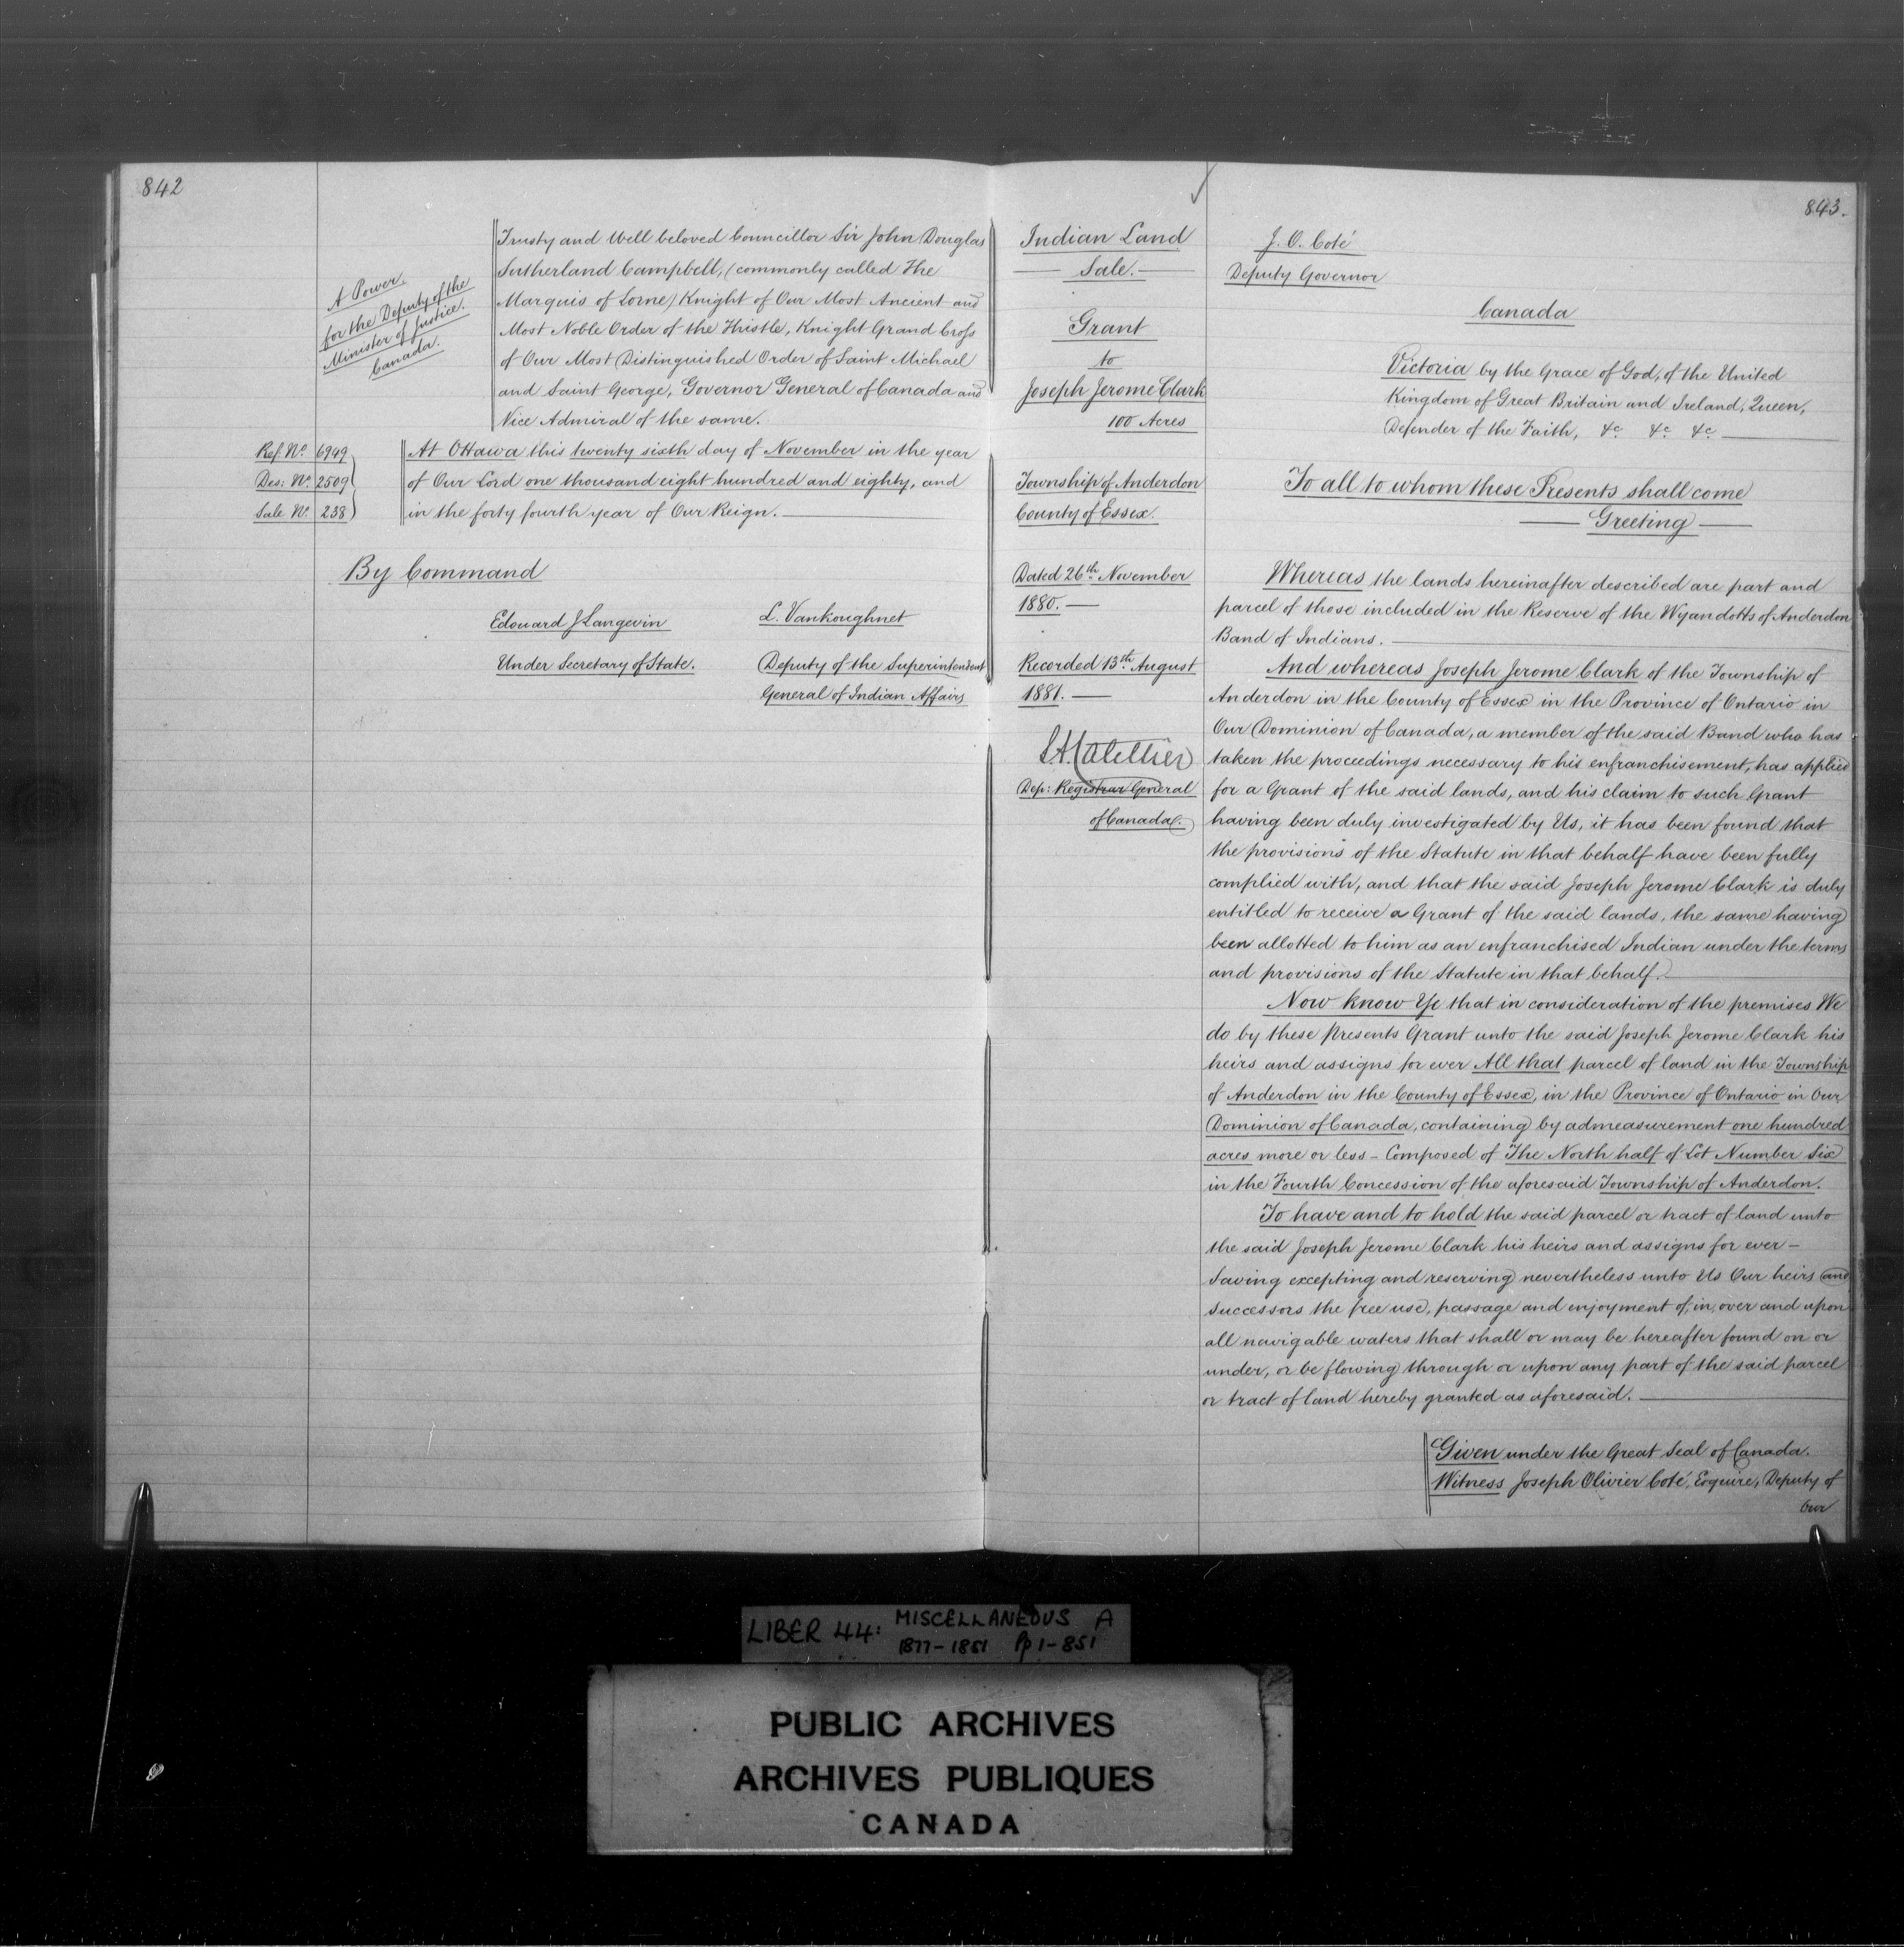 842
Trusty and Well beloved Councillor Sir John Douglas
Sutherland Campbell, (commonly called The
Marquis of Lorne) Knight of Our Most Ancient and
Most Noble Order of the Thistle, Knight Grand Cross
of Our Most Distinguished Order of Saint Michael
and Saint George, Governor General of Canada and
Vice Admiral of the same.
A Power
for the Deputy of the
Minister of Justice.
Canada.
Ref. No. 6949
Des: No. 2509
Sale No. 238
At Ottawa this twenty sixth day of November in the year
of Our Lord one thousand eight hundred and eighty, and
in the forty fourth year of Our Reign.
By Command
Edouard J Langevin
Under Secretary of State.
L. Vankoughnet
Deputy of the Superintendent
General of Indian Affairs
843.
Indian Land
Sale.
Grant
to
Joseph Jerome Clark
100 Acres
Township of Anderdon
County of Essex.
Dated 26th November
1880.
Recorded 13th August
1881.
Dep: Registrar General
of Canada.
J. O. Coté
Deputy Governor
Canada
Victoria by the Grace of God, of the United
Kingdom of Great Britain and Ireland, Queen,
Defender of the Faith, &c &c &c
To all to whom these Presents shall come
Greeting
Whereas the lands hereinafter described are part and
parcel of those included in the Reserve of the Wyandotts of Anderdon
Band of Indians.
And whereas Joseph Jerome Clark of the Township of
Anderdon in the County of Essex in the Province of Ontario in
Our Dominion of Canada, a member of the said Band who has
taken the proceedings necessary to his enfranchisement, has applied
for a Grant of the said lands, and his claim to such Grant
having been duly investigated by Us, it has been found that
the provisions of the Statute in that behalf have been fully
complied with, and that the said Joseph Jerome Clark is duly
entitled to receive a Grant of the said lands, the same having
been allotted to him as an enfranchised Indian under the terms
and provisions of the Statute in that behalf.
Now know Ye that in consideration of the premises We
do by these Presents Grant unto the said Joseph Jerome Clark his
heirs and assigns for ever All that parcel of land in the Township
of Anderdon in the County of Essex, in the Province of Ontario in Our
Dominion of Canada, containing by admeasurement one hundred
acres more or less - Composed of The North half of Lot Number Six
in the Fourth Concession of the aforesaid Township of Anderdon.
To have and to hold the said parcel or tract of land unto
the said Joseph Jerome Clark his heirs and assigns for ever -
Saving excepting and reserving nevertheless unto Us Our heirs and
successors the free use, passage and enjoyment of, in, over and upon
all navigable waters that shall or may be hereafter found on or
under, or be flowing through or upon any part of the said parcel
or tract of land hereby granted as aforesaid.
Given under the Great Seal of Canada.
Witness Joseph Olivier Coté, Esquire, Deputy of
Our
LIBER 44: MISCELLANEOUS A
1877-1881 Pp 1-851
PUBLIC ARCHIVES
ARCHIVES PUBLIQUES
CANADA